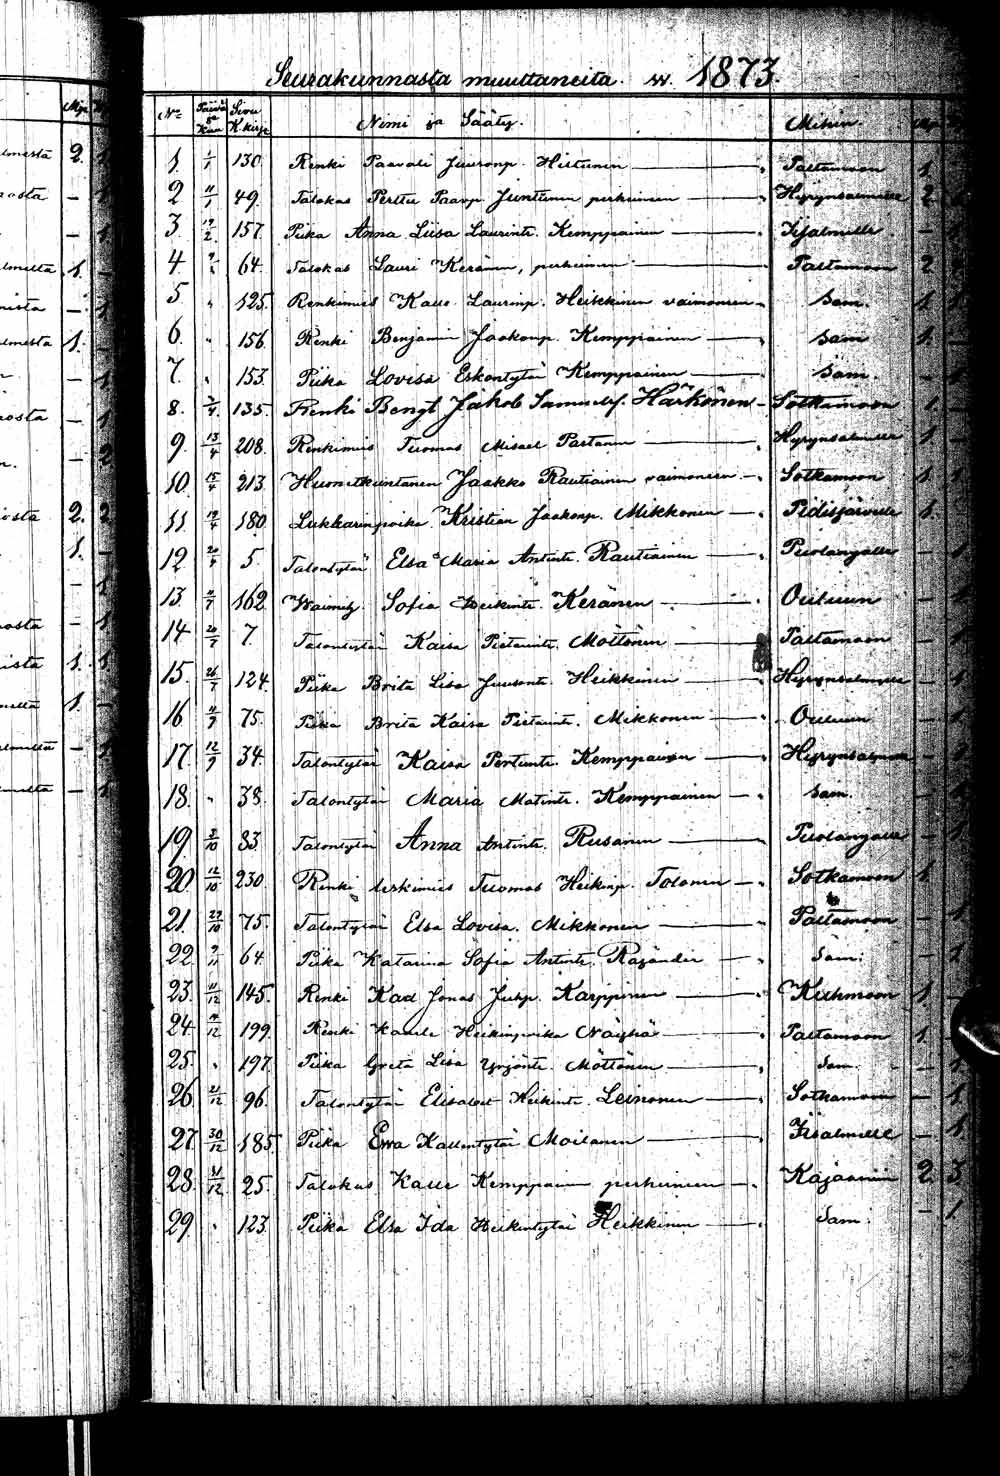 Seurakunnasta muuttaneita w. 1873
No Päivä ja Kuu Sivu K.kirja Nimi ja Sääty. Mihin. Mp.
1. 1/1 130. Renki Paavali Juusonp. Hiltunen Paltamoon 1.
2 11/1 49. Talokas Perttu Paavp. Juntunen perheineen Hyrynsalmelle 2
3 157. Piika Anna Liisa Laurint. Kemppainen Iisalmelle – 1
4 64. Talokas Lauri Keränen, perheineen Paltamoon 2
5 " 125. Renkimies Kalle Laurinp. Heikkinen vaimoneen sam. 1. 1
6. " 156. Renki Benjamin Jaakonp. Kemppainen sam 1. –
7. " 153. Piika Lovisa Eskontytär Kemppainen sam. – 1
8. 135. Renki Bengt Jakob Samuelsf. Härkönen Sotkamoon 1. –
9. 13/4 208. Renkimies Tuomas Misael Partanen Hyrynsalmelle 1. –
10. 15/4 213. Huonetkuntanen Jaakko Rautiainen vaimoneen Sotkamoon 1. 1.
11 19/4 180. Lukkarinpoika Kristian Jaakonp. Mikkonen Pidisjärvelle 1.
12 20/4 5. Talontytär Elsa Maria Antint. Rautiainen Puolangalle – 1
13. 11/7 162. Waimoly. Sofia Heikint. Keränen Ouluun – 1
14 20/7 7 Talontytär Kaisa Pietarint. Möttönen Paltamoon – 1
15. 26/7 124. Piika Brita Lisa Juusont. Heikkinen Hyrynsalmelle – 1
16 11/9 75. Piika Brita Kaisa Pietarint. Mikkonen Ouluun – 1
17. 12/9 34. Talontytär Kaisa Pertunt. Kemppainen Hyrynsalmelle – 1
18. " 38. Talontytär Maria Matint. Kemppainen sam. – 1
19. 3/10 83. Talontytär Anna Antint. Rusanen Puolangalle – 1
20 12/10 230. Renki leskimies Tuomas Heikinp. Tolonen Sotkamoon 1
21. 29/10 75. Talontytär Elsa Lovisa Mikkonen Paltamoon – 1.
22. 9/11 64. Piika Katarina Sofia Antint. Rajander Sam. – 1
23. 11/12 145. Renki Karl Jonas Juhp. Karppinen Kuhmoon 1. –
24 199. Renki Kalle Heikinpoika Näyhä Paltamoon 1. –
25. " 197. Piika Greta Lisa Yrjönt. Möttönen Sam. – 1.
26 21/12 96. Talontytär Elisabet Heikint. Leinonen Sotkamoon – 1.
27. 30/12 185. Piika Ewa Kallentytär Moilanen Iisalmelle – 1.
28. 31/12 25. Talokas Kalle Kemppainen perheineen Kajaaniin 2. 3.
29. " 123. Piika Elsa Ida Heikintytär Heikkinen Sam. – 1.